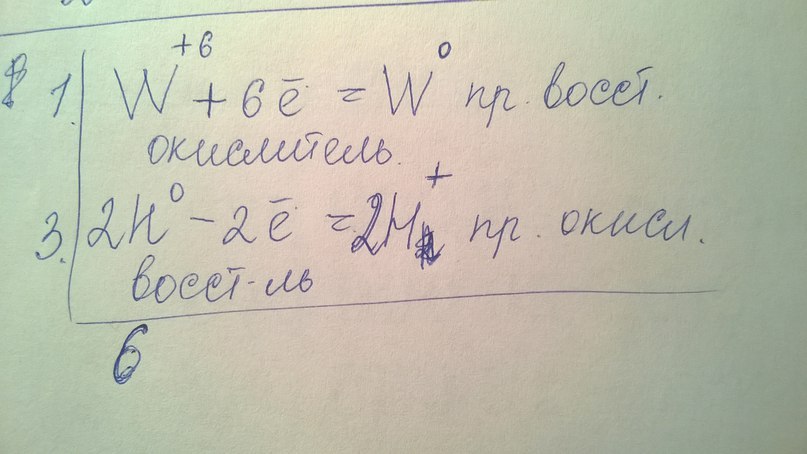 1. W⁺⁶ + 6ē = W⁰ пр. восст.
окислитель.
3. 2H⁰ - 2ē = 2H⁺ пр. окисл.
восст-ль
6